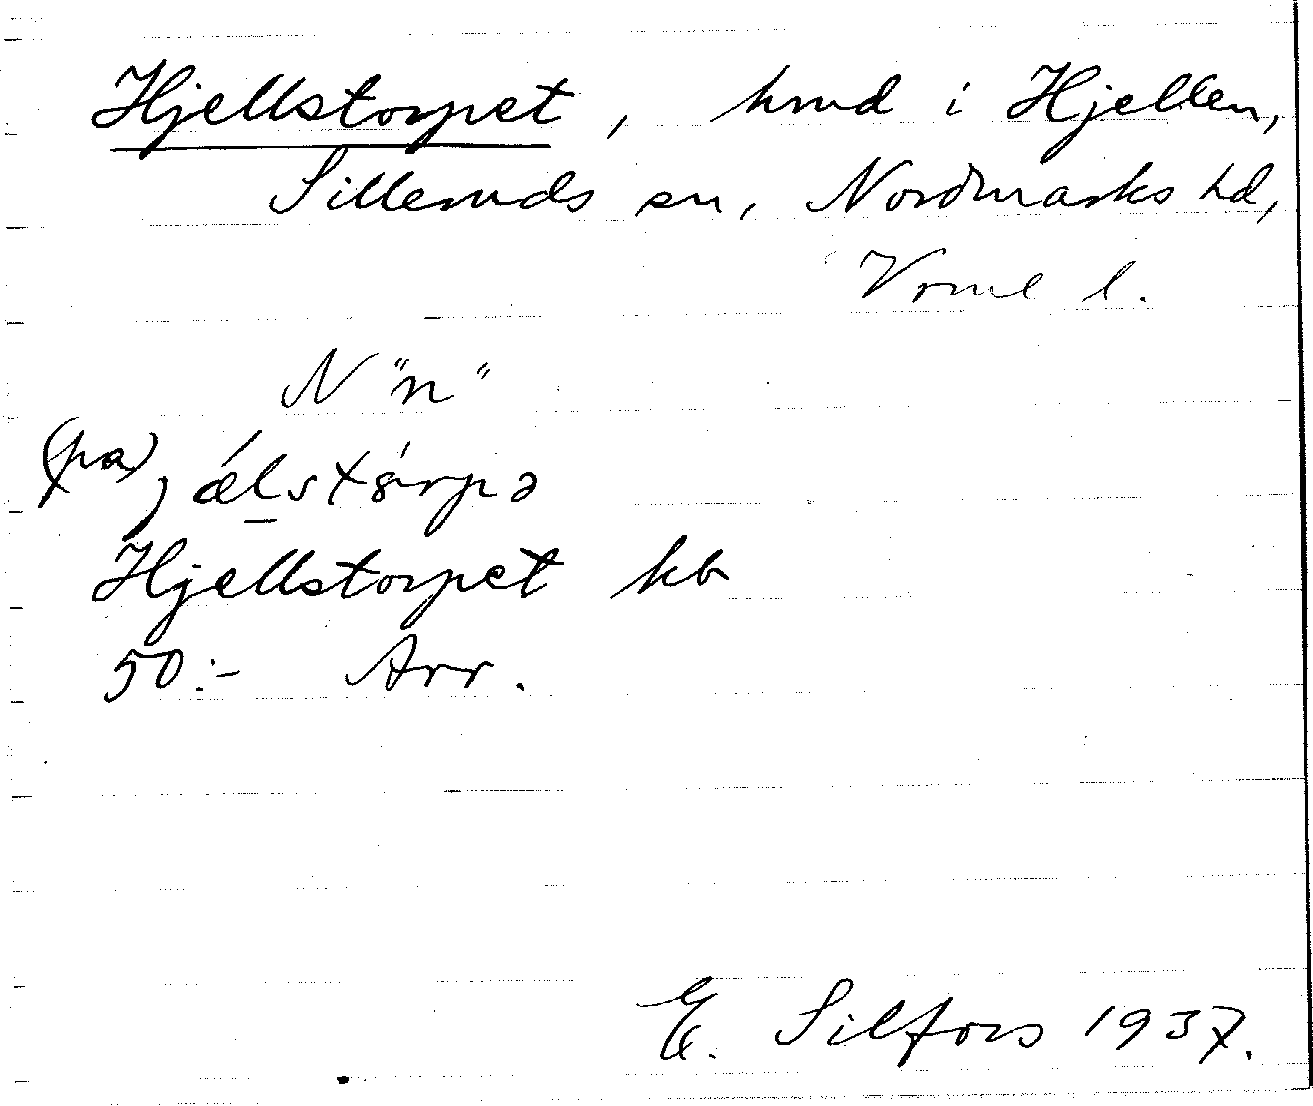 Hjellstorpet, hmd i Hjellen,
Silleruds sn, Nordmarks hd,
Vrml l.
N "n"
(pa) jælstǻrpə
Hjellstorpet kb
50:- Arr.
E. Silfors 1937.